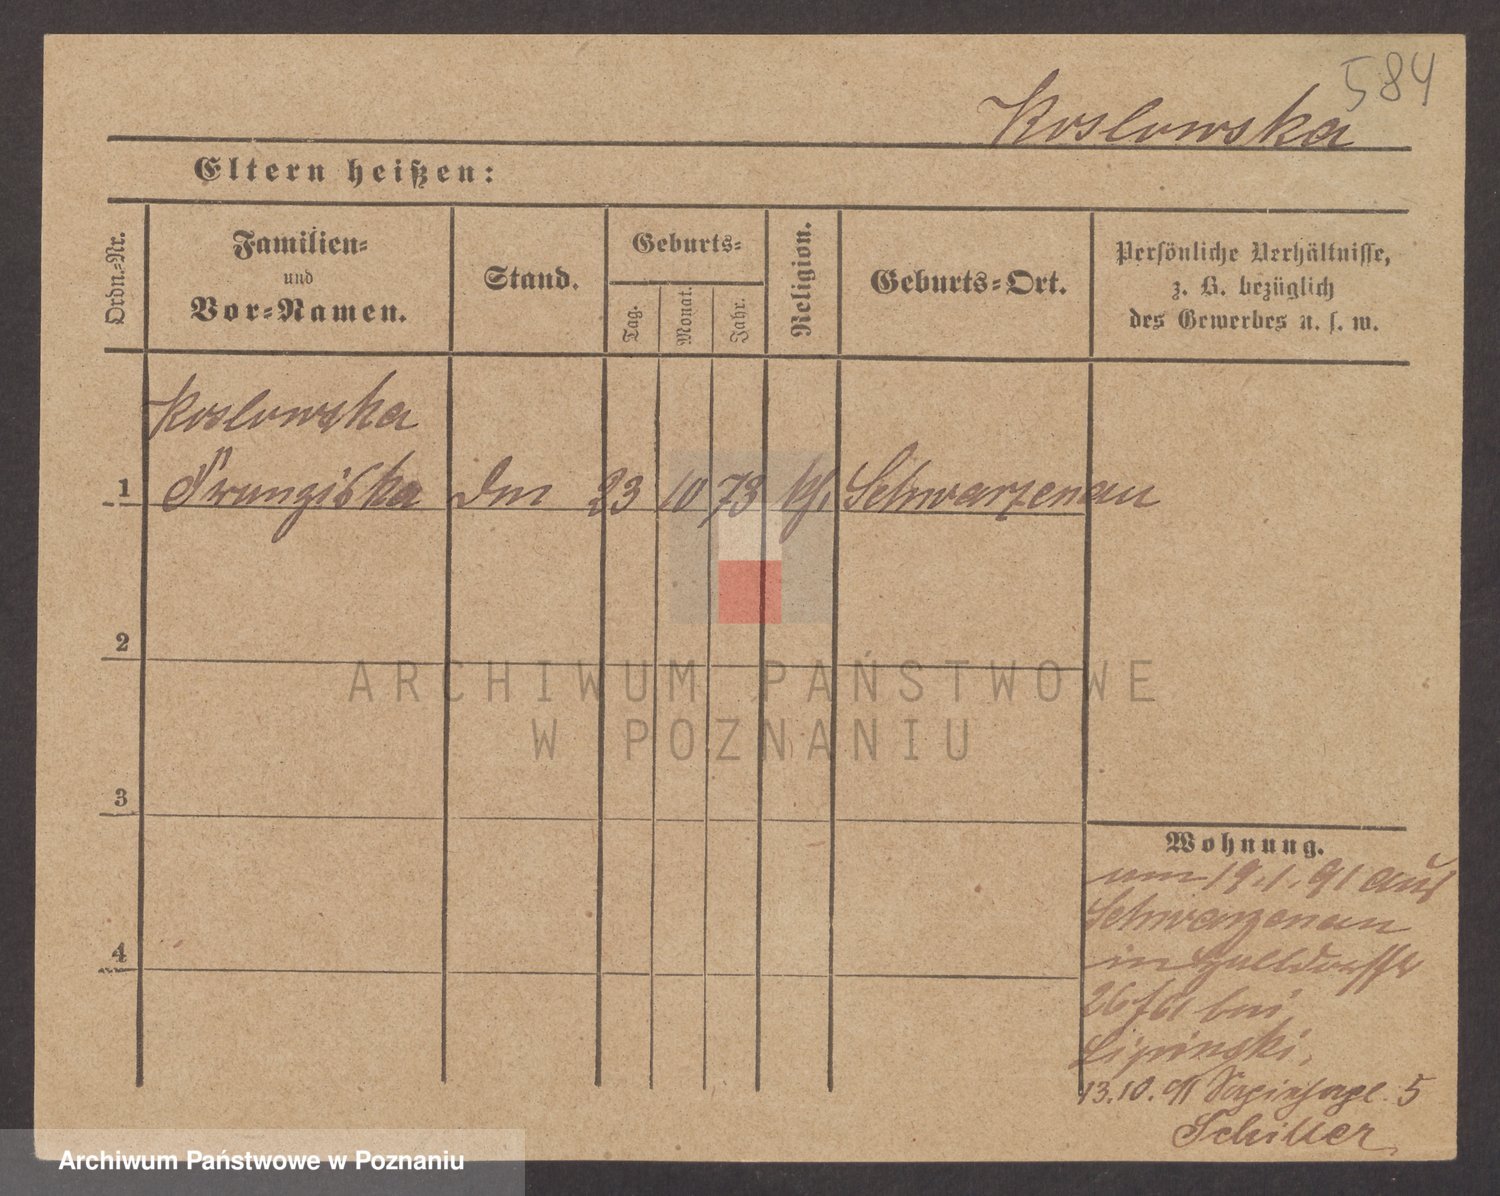 584
Koslowska
Eltern heißen:
Ordn.-Nr.
Familien-
und
Vor-Namen.
Stand.
Geburts-
Tag.
Monat.
Jahr.
Religion.
Geburts-Ort.
Persönliche Verhältnisse,
z. B. bezüglich
des Gewerbes u. s. w.
Koslowska
1 Franziska Dm 23 10 73 kf. Schwarzenau
2
3
4
Wohnung.
am 19.1.91 aus
Schwarzenau
in
bei
Lipinski,
13.10.91 Sapiehapl. 5
Schiller
ARCHIWUM PAŃSTWOWE
W POZNANIU
Archiwum Państwowe w Poznaniu